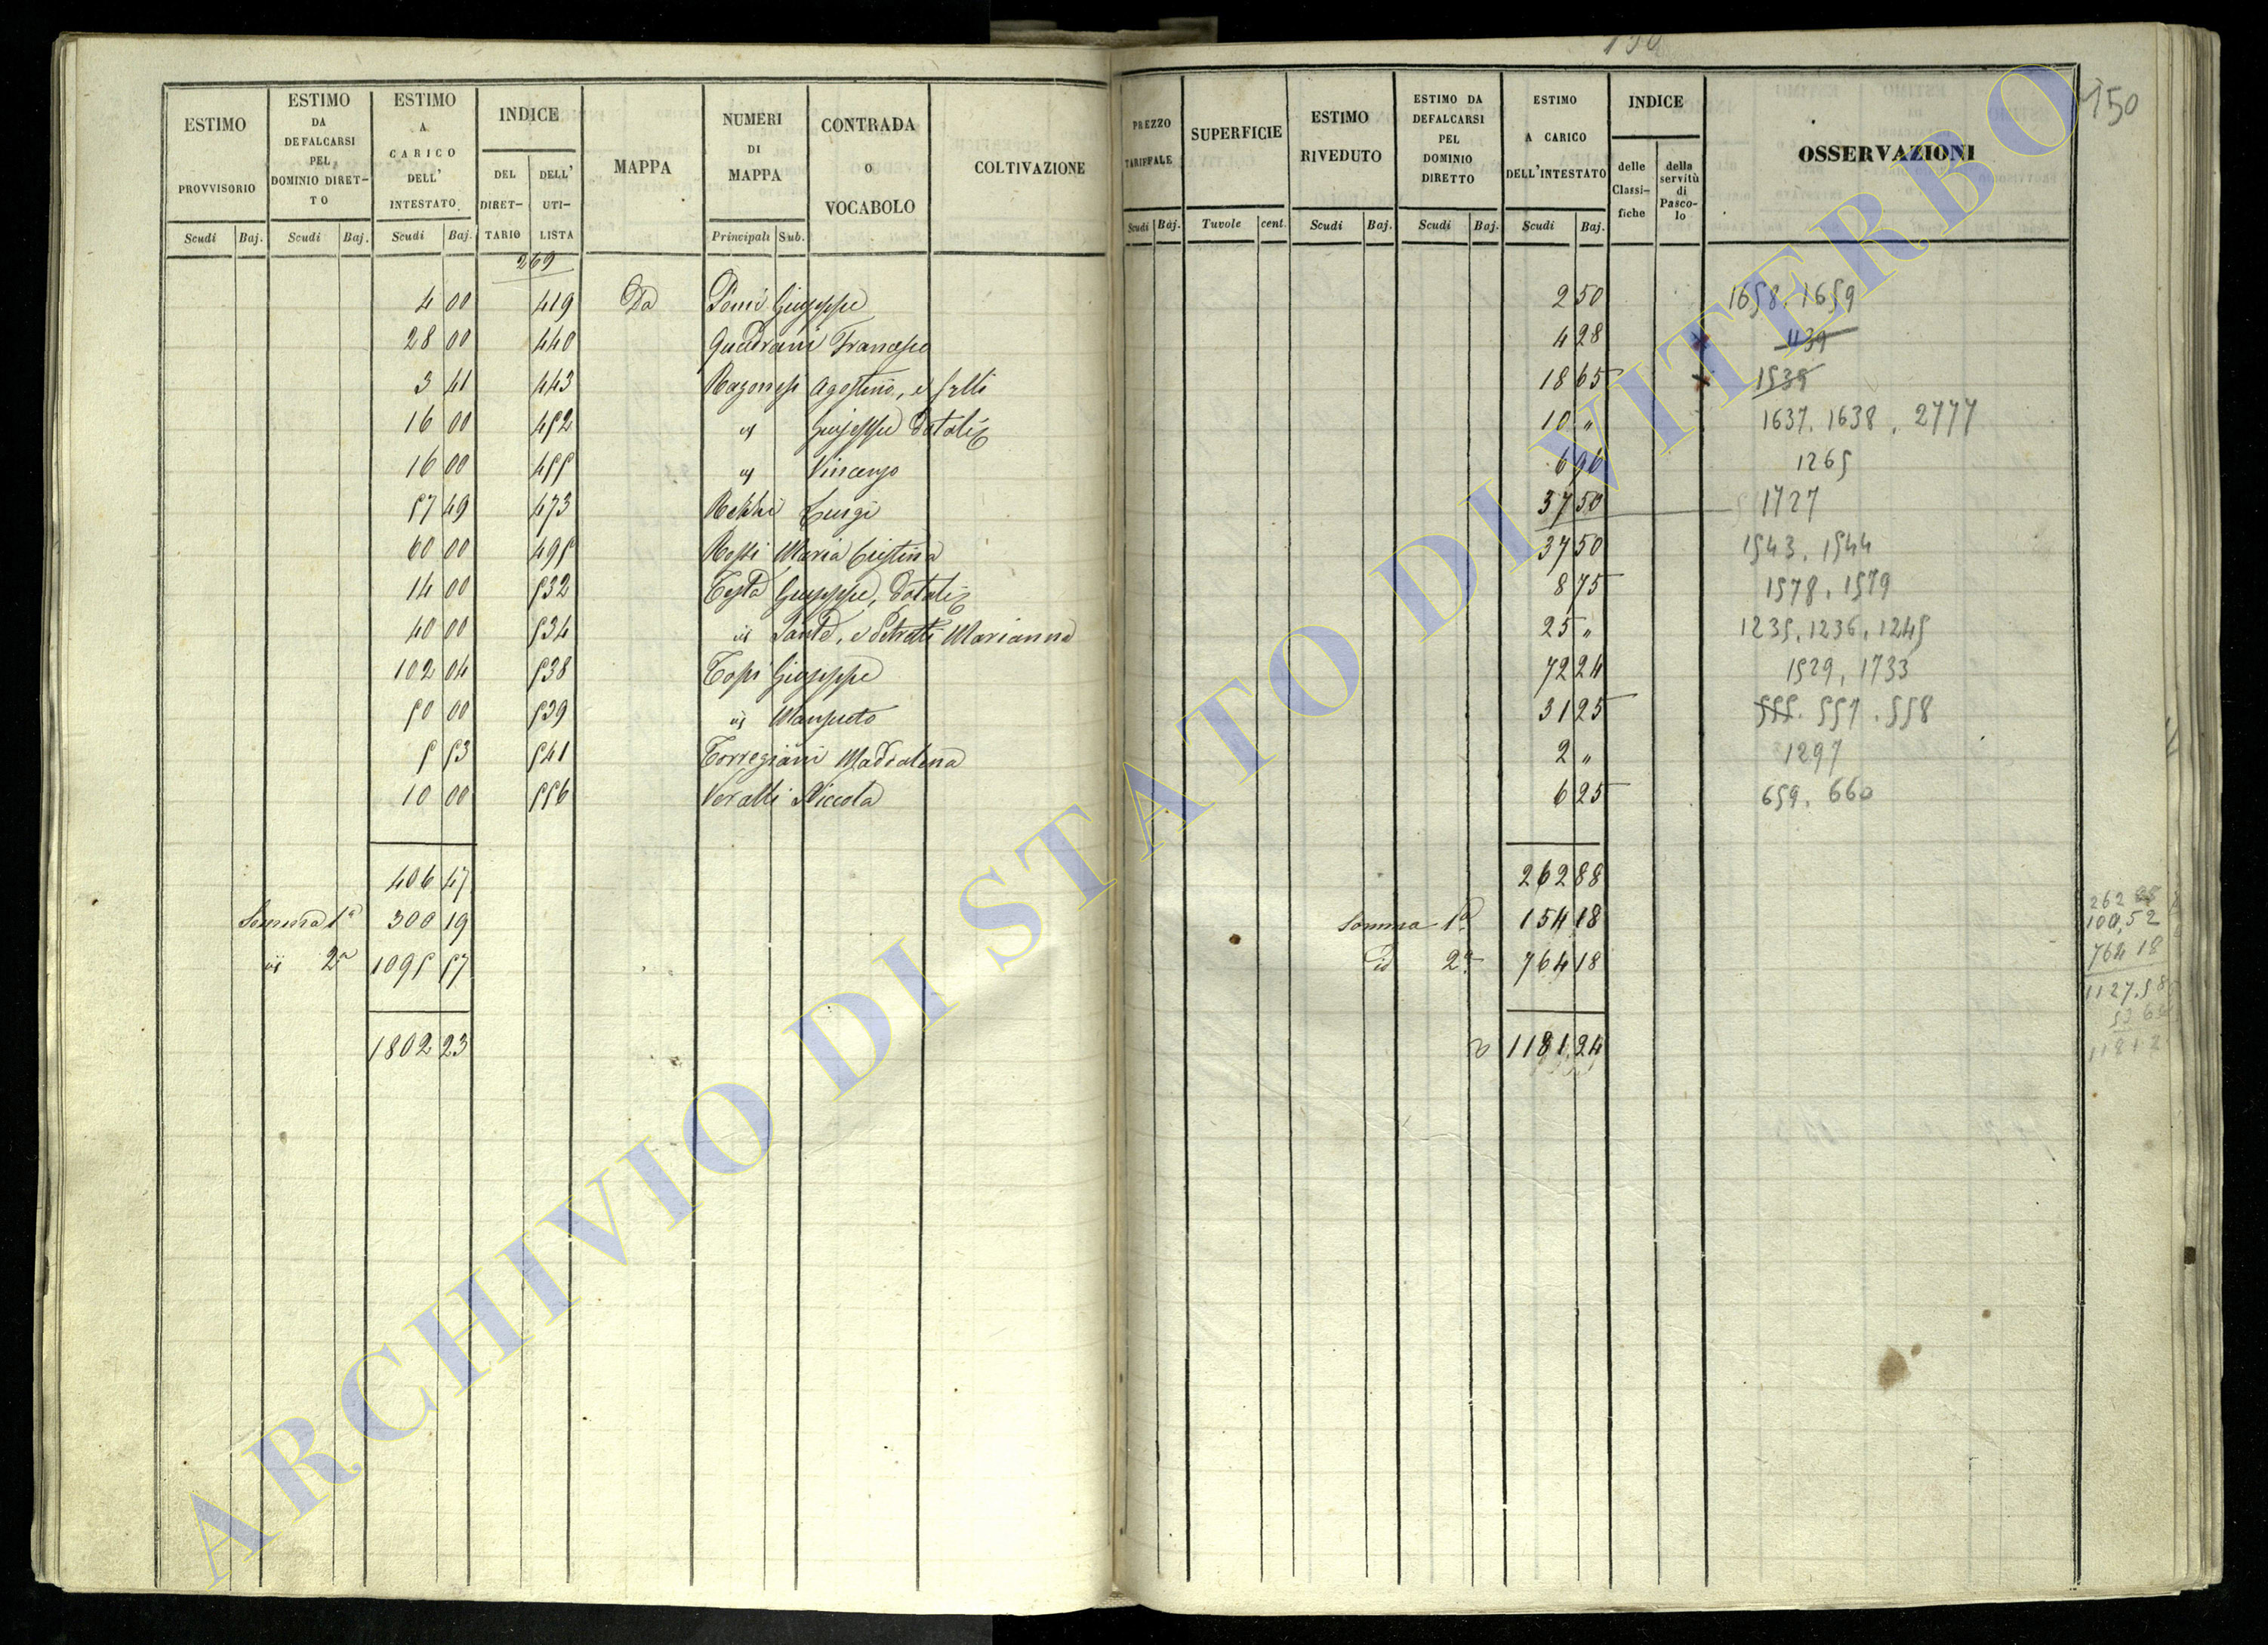 150
150
ESTIMO PROVVISORIO
ESTIMO DA DEFALCARSI PEL DOMINIO DIRETTO
ESTIMO A CARICO DELL' INTESTATO
INDICE
DEL DIRETTARIO
DELL' UTILISTA
MAPPA
NUMERI DI MAPPA
CONTRADA O VOCABOLO
COLTIVAZIONE
Scudi Baj. Scudi Baj. Scudi Baj. Principali Sub.
PREZZO TARIFFALE
SUPERFICIE
ESTIMO RIVEDUTO
ESTIMO DA DEFALCARSI PEL DOMINIO DIRETTO
ESTIMO A CARICO DELL'INTESTATO
INDICE
delle Classifiche
della servitù di Pascolo
OSSERVAZIONI
Scudi Baj. Tavole cent. Scudi Baj. Scudi Baj. Scudi Baj.
269
4 00 419 Da Giuseppe 2 50 1658. 1659
28 00 440 Quadrani Francesco 4 28 1139
3 41 443 Ragonesi Agostino, e frlli 18 65 1535
16 00 452 id Giuseppe 10 " 1637. 1638. 2777
16 00 455 id Vincenzo 6 96 1265
57 49 473 Luigi 37 50 1727
60 00 495 Rossi Maria Cristina 37 50 1543. 1544
14 00 532 Testa Giuseppe, 8 75 1578. 1579
40 00 534 id Sante, e Petratti Marianna 25 " 1235. 1236. 1245
102 04 538 Topi Giuseppe 72 24 1529. 1733
50 00 539 id Mansueto 31 25 555. 557. 558
5 53 541 Torregiani Maddalena 2 " 1297
10 00 556 Veralli Niccola 6 25 659. 660
406 47 262 88
Somma 1ª 300 19 Somma 1ª 154 18
id 2ª 1095 57 id 2ª 764 18
1802 23 1181 24
262 88
100,52
764 18
1127.58
53 66
1181 2
ARCHIVIO DI STATO DI VITERBO